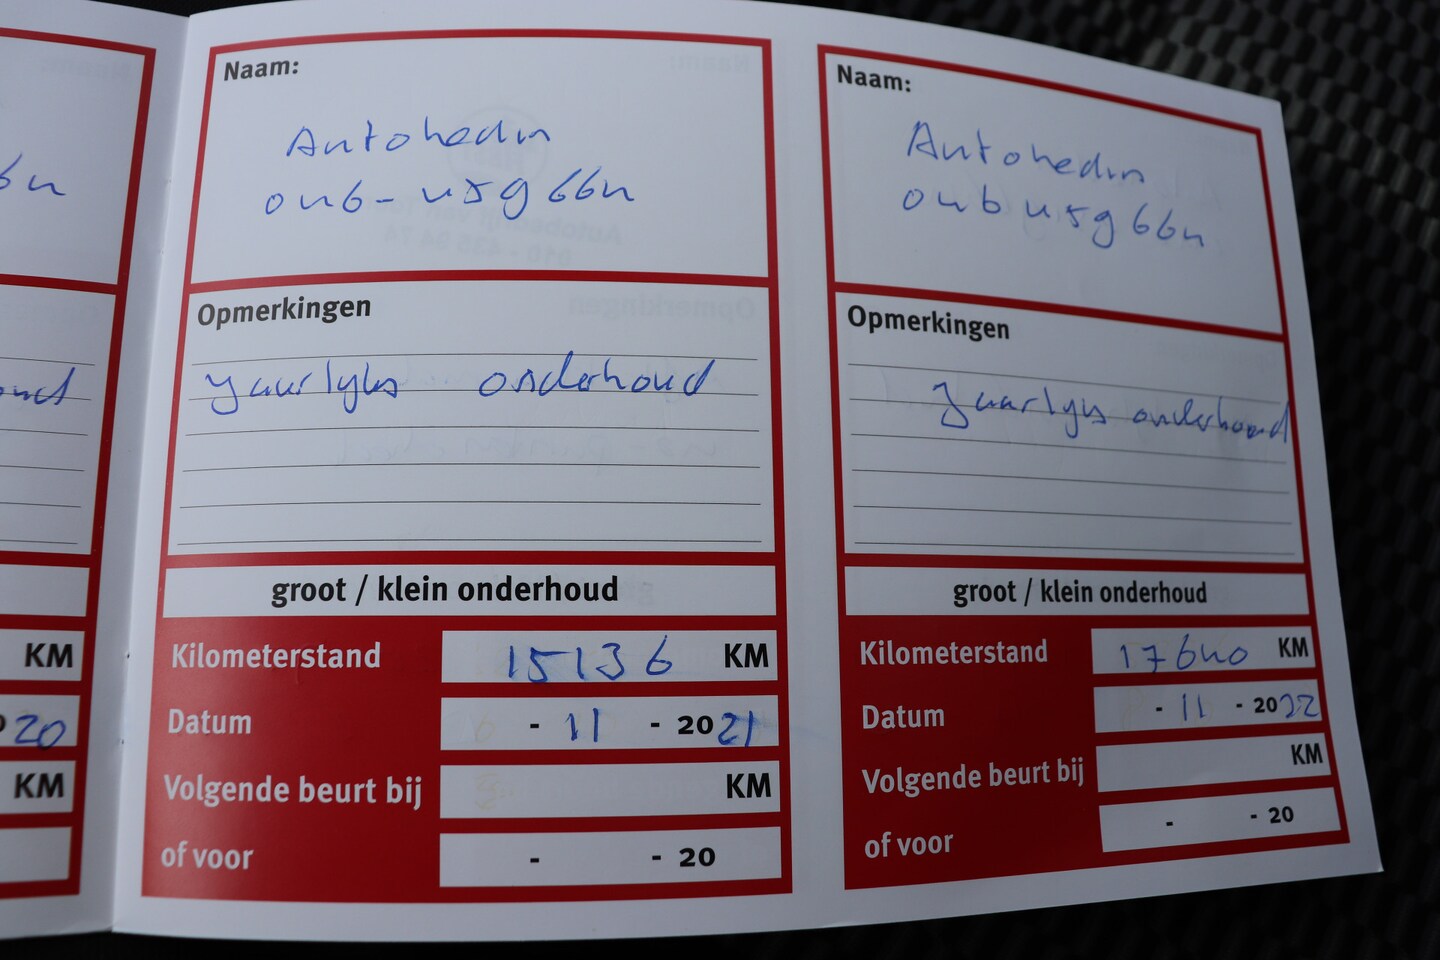 6n
20
KM
KM
Naam:
Autohedin
Opmerkingen
Jaarlyks onderhoud
groot / klein onderhoud
Kilometerstand 15136 KM
Datum - 11 - 2021
Volgende beurt bij KM
of voor - - 20
Naam:
Autohedin
Opmerkingen
Jaarlyks onderhoud
groot / klein onderhoud
Kilometerstand KM
Datum - 11 - 2022
Volgende beurt bij KM
of voor - - 20